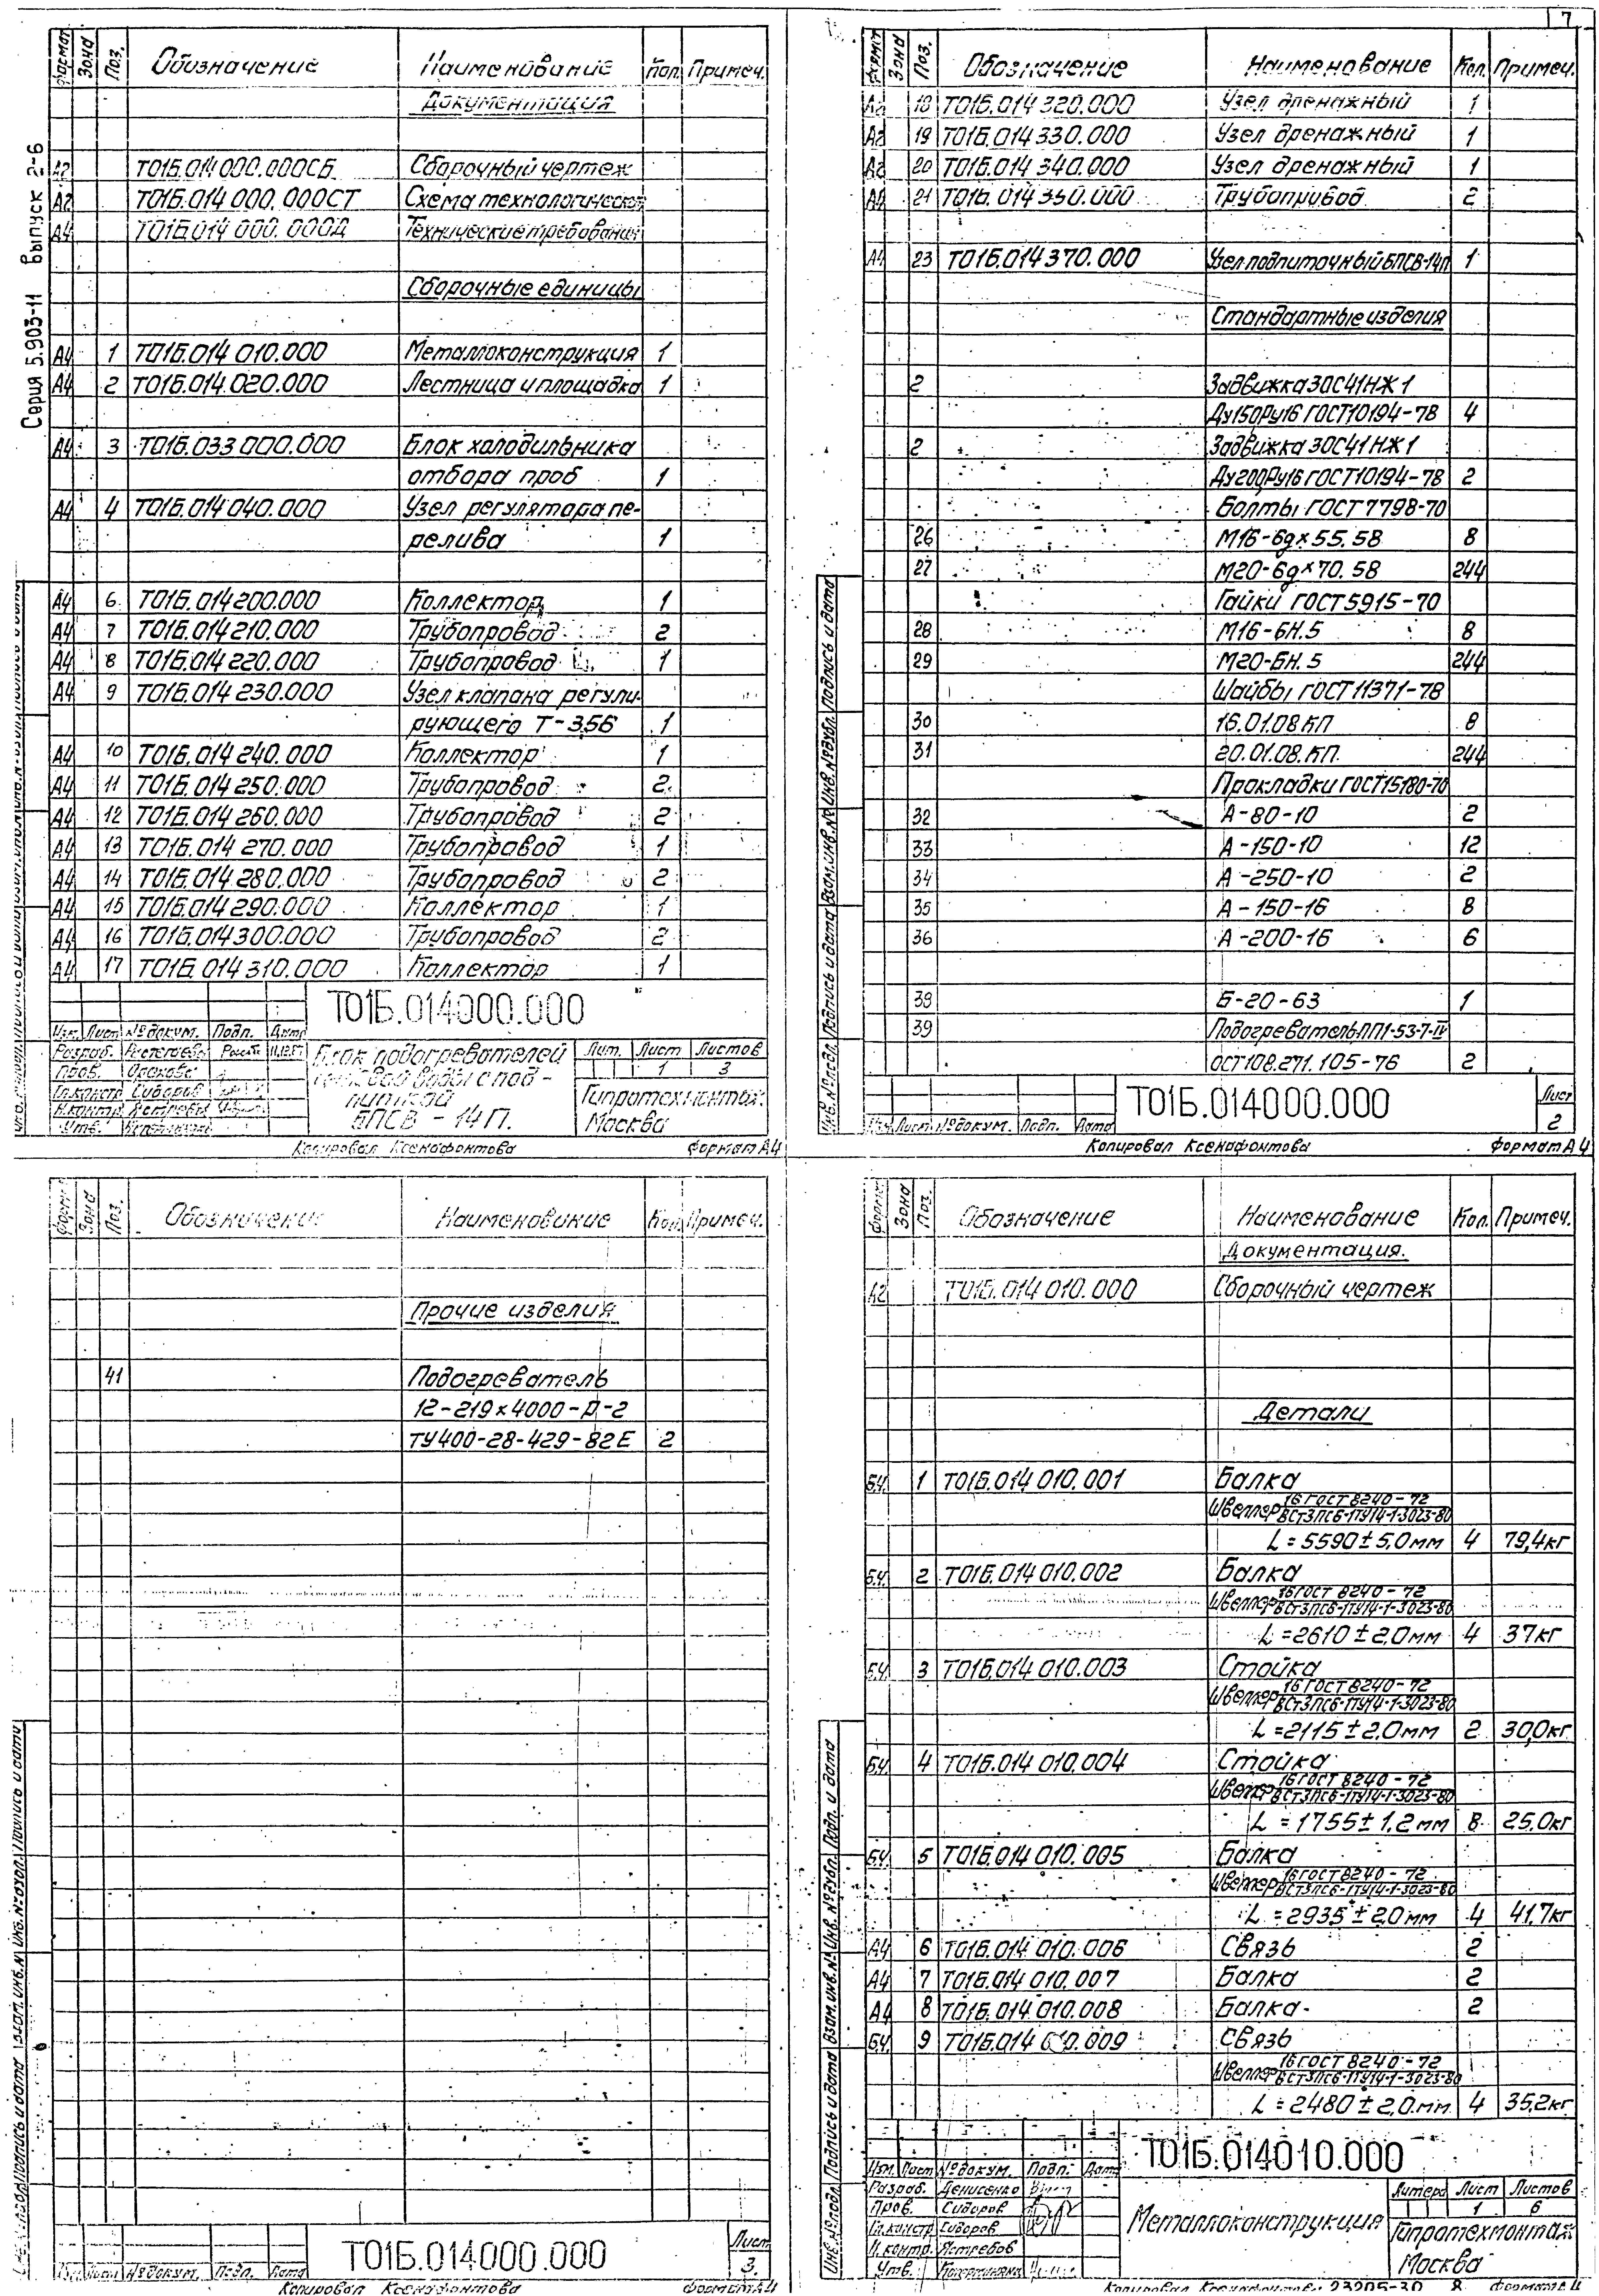 7
Серия 5.903-11 выпуск 2-6
Формат Зона Поз. Обозначение Наименование Кол. Примеч.
Документация
А2 Т01Б.014 000.000СБ Сборочный чертеж
А2 Т01Б.014 000.000СТ Схема технологическая
А4 Т01Б.014 000.000Д Технические требования
Сборочные единицы
А4 1 Т01Б.014 010.000 Металлоконструкция 1
А4 2 Т01Б.014.020.000 Лестница и площадка 1
А4 3 Т01Б.033 000.000 Блок холодильника
отбора проб 1
А4 4 Т01Б.014 040.000 Узел регулятора пе-
релива 1
А4 6 Т01Б.014 200.000 Коллектор 1
А4 7 Т01Б.014 210.000 Трубопровод 2
А4 8 Т01Б.014 220.000 Трубопровод 1
А4 9 Т01Б.014 230.000 Узел клапана регули-
рующего Т-35б 1
А4 10 Т01Б.014 240.000 Коллектор 1
А4 11 Т01Б.014 250.000 Трубопровод 2
А4 12 Т01Б.014 260.000 Трубопровод 2
А4 13 Т01Б.014 270.000 Трубопровод 1
А4 14 Т01Б.014 280.000 Трубопровод 2
А4 15 Т01Б.014 290.000 Коллектор 1
А4 16 Т01Б.014 300.000 Трубопровод 2
А4 17 Т01Б.014 310.000 Коллектор 1
Т01Б.014000.000
Изм. Лист № докум. Подп. Дата
Разраб.
Пров.
Гл.констр. Сидоров
Н.контр. Ястребов
Утв.
Блок подогревателей
сетевой воды с под-
питкой
БПСВ - 14П.
Лит. Лист Листов
1 3
Гипротехмонтаж.
Москва
Копировал Ксенафонтова формат А4
Формат Зона Поз. Обозначение Наименование Кол. Примеч.
А2 18 Т01Б.014 320.000 Узел дренажный 1
А2 19 Т01Б.014 330.000 Узел дренажный 1
А2 20 Т01Б.014 340.000 Узел дренажный 1
А4 21 Т01Б.014 350.000 Трубопровод 2
А4 23 Т01Б.014 370.000 Узел подпиточный БПСВ-14п 1
Стандартные изделия
2 Задвижка 30С41НЖ1
Ду150Ру16 ГОСТ10194-78 4
2 Задвижка 30С41НЖ1
Ду200Ру16 ГОСТ10194-78 2
Болты ГОСТ 7798-70
26 М16-6g×55.58 8
27 М20-6g×70.58 244
Гайки ГОСТ 5915-70
28 М16-6Н.5 8
29 М20-6Н.5 244
Шайбы ГОСТ 11371-78
30 16.01.08.КП 8
31 20.01.08.КП. 244
Прокладки ГОСТ15180-70
32 А-80-10 2
33 А-150-10 12
34 А-250-10 2
35 А-150-16 8
36 А-200-16 6
38 Б-20-63 1
39 Подогреватель ПП1-53-7-IV
ОСТ108.271.105-76 2
Т01Б.014000.000
Лист
2
Изм. Лист № докум. Подп. Дата
Копировал Ксенафонтова формат А4
Формат Зона Поз. Обозначение Наименование Кол. Примеч.
Прочие изделия
41 Подогреватель
12-219×4000-Р-2
ТУ400-28-429-82Е 2
Т01Б.014000.000
Лист
3.
Копировал Ксенафонтова формат А4
Формат Зона Поз. Обозначение Наименование Кол. Примеч.
Документация.
А2 Т01Б.014 010.000 Сборочный чертеж
Детали
Б.Ч. 1 Т01Б.014 010.001 Балка
Швеллер 16 ГОСТ 8240-72
ВСт3пс6-1ТУ14-1-3023-80
L = 5590 ± 5,0мм 4 79,4кг
Б.Ч. 2 Т01Б.014 010.002 Балка
Швеллер 16 ГОСТ 8240-72
ВСт3пс6-1ТУ14-1-3023-80
L = 2610 ± 2,0мм 4 37кг
Б.Ч. 3 Т01Б.014 010.003 Стойка
Швеллер 16 ГОСТ 8240-72
ВСт3пс6-1ТУ14-1-3023-80
L = 2115 ± 2,0мм 2 30,0кг
Б.Ч. 4 Т01Б.014 010.004 Стойка
Швеллер 16 ГОСТ 8240-72
ВСт3пс6-1ТУ14-1-3023-80
L = 1755 ± 1,2мм 8 25,0кг
Б.Ч. 5 Т01Б.014 010.005 Балка
Швеллер 16 ГОСТ 8240-72
ВСт3пс6-1ТУ14-1-3023-80
L = 2935 ± 2,0мм 4 41,7кг
А4 6 Т01Б.014 010.006 Связь 2
А4 7 Т01Б.014 010.007 Балка 2
А4 8 Т01Б.014 010.008 Балка 2
Б.Ч. 9 Т01Б.014 010.009 Связь
Швеллер 16 ГОСТ 8240-72
ВСт3пс6-1ТУ14-1-3023-80
L = 2480 ± 2,0мм 4 35,2кг
Т01Б.014010.000
Изм. Лист № докум. Подп. Дата
Разраб. Денисенко
Пров. Сидоров
Гл.констр. Сидоров
Н.контр. Ястребов
Утв.
Металлоконструкция
Литера Лист Листов
1 6
Гипротехмонтаж
Москва
Копировал Ксенафонтова 23205-30 8 формат А4
Инв. № подл. Подпись и дата Взам. инв. № Инв. № дубл. Подпись и дата